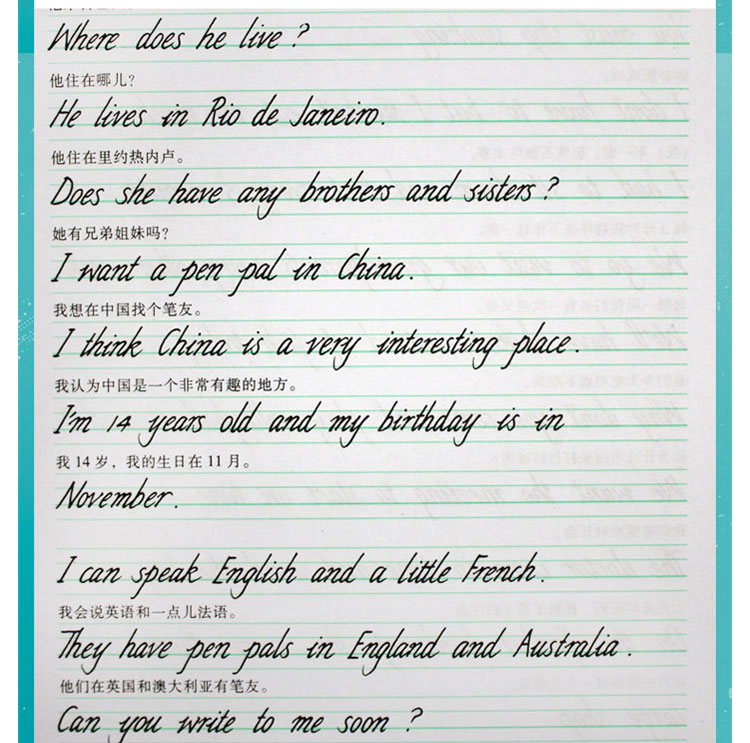 Where does he live?
他住在哪儿?
He lives in Rio de Janeiro.
他住在里约热内卢。
Does she have any brothers and sisters?
她有兄弟姐妹吗?
I want a pen pal in China.
我想在中国找个笔友。
I think China is a very interesting place.
我认为中国是一个非常有趣的地方。
I'm 14 years old and my birthday is in
我 14 岁，我的生日在 11 月。
November.
I can speak English and a little French.
我会说英语和一点儿法语。
They have pen pals in England and Australia.
他们在英国和澳大利亚有笔友。
Can you write to me soon?